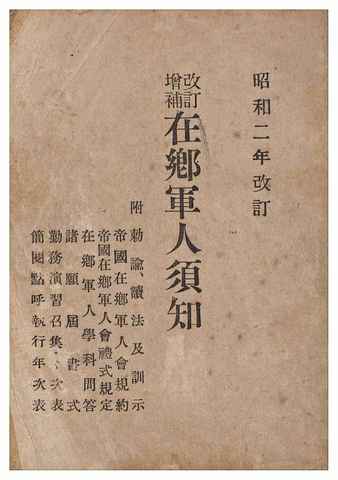 昭和二年改訂
改訂
增補
在鄕軍人須知
附 勅諭、讀法及訓示
帝國在鄕軍人會規約
帝國在鄕軍人會禮式規定
在鄕軍人學科問答
諸願屆書式
勤務演習召集 次表
簡閱點呼執行年次表